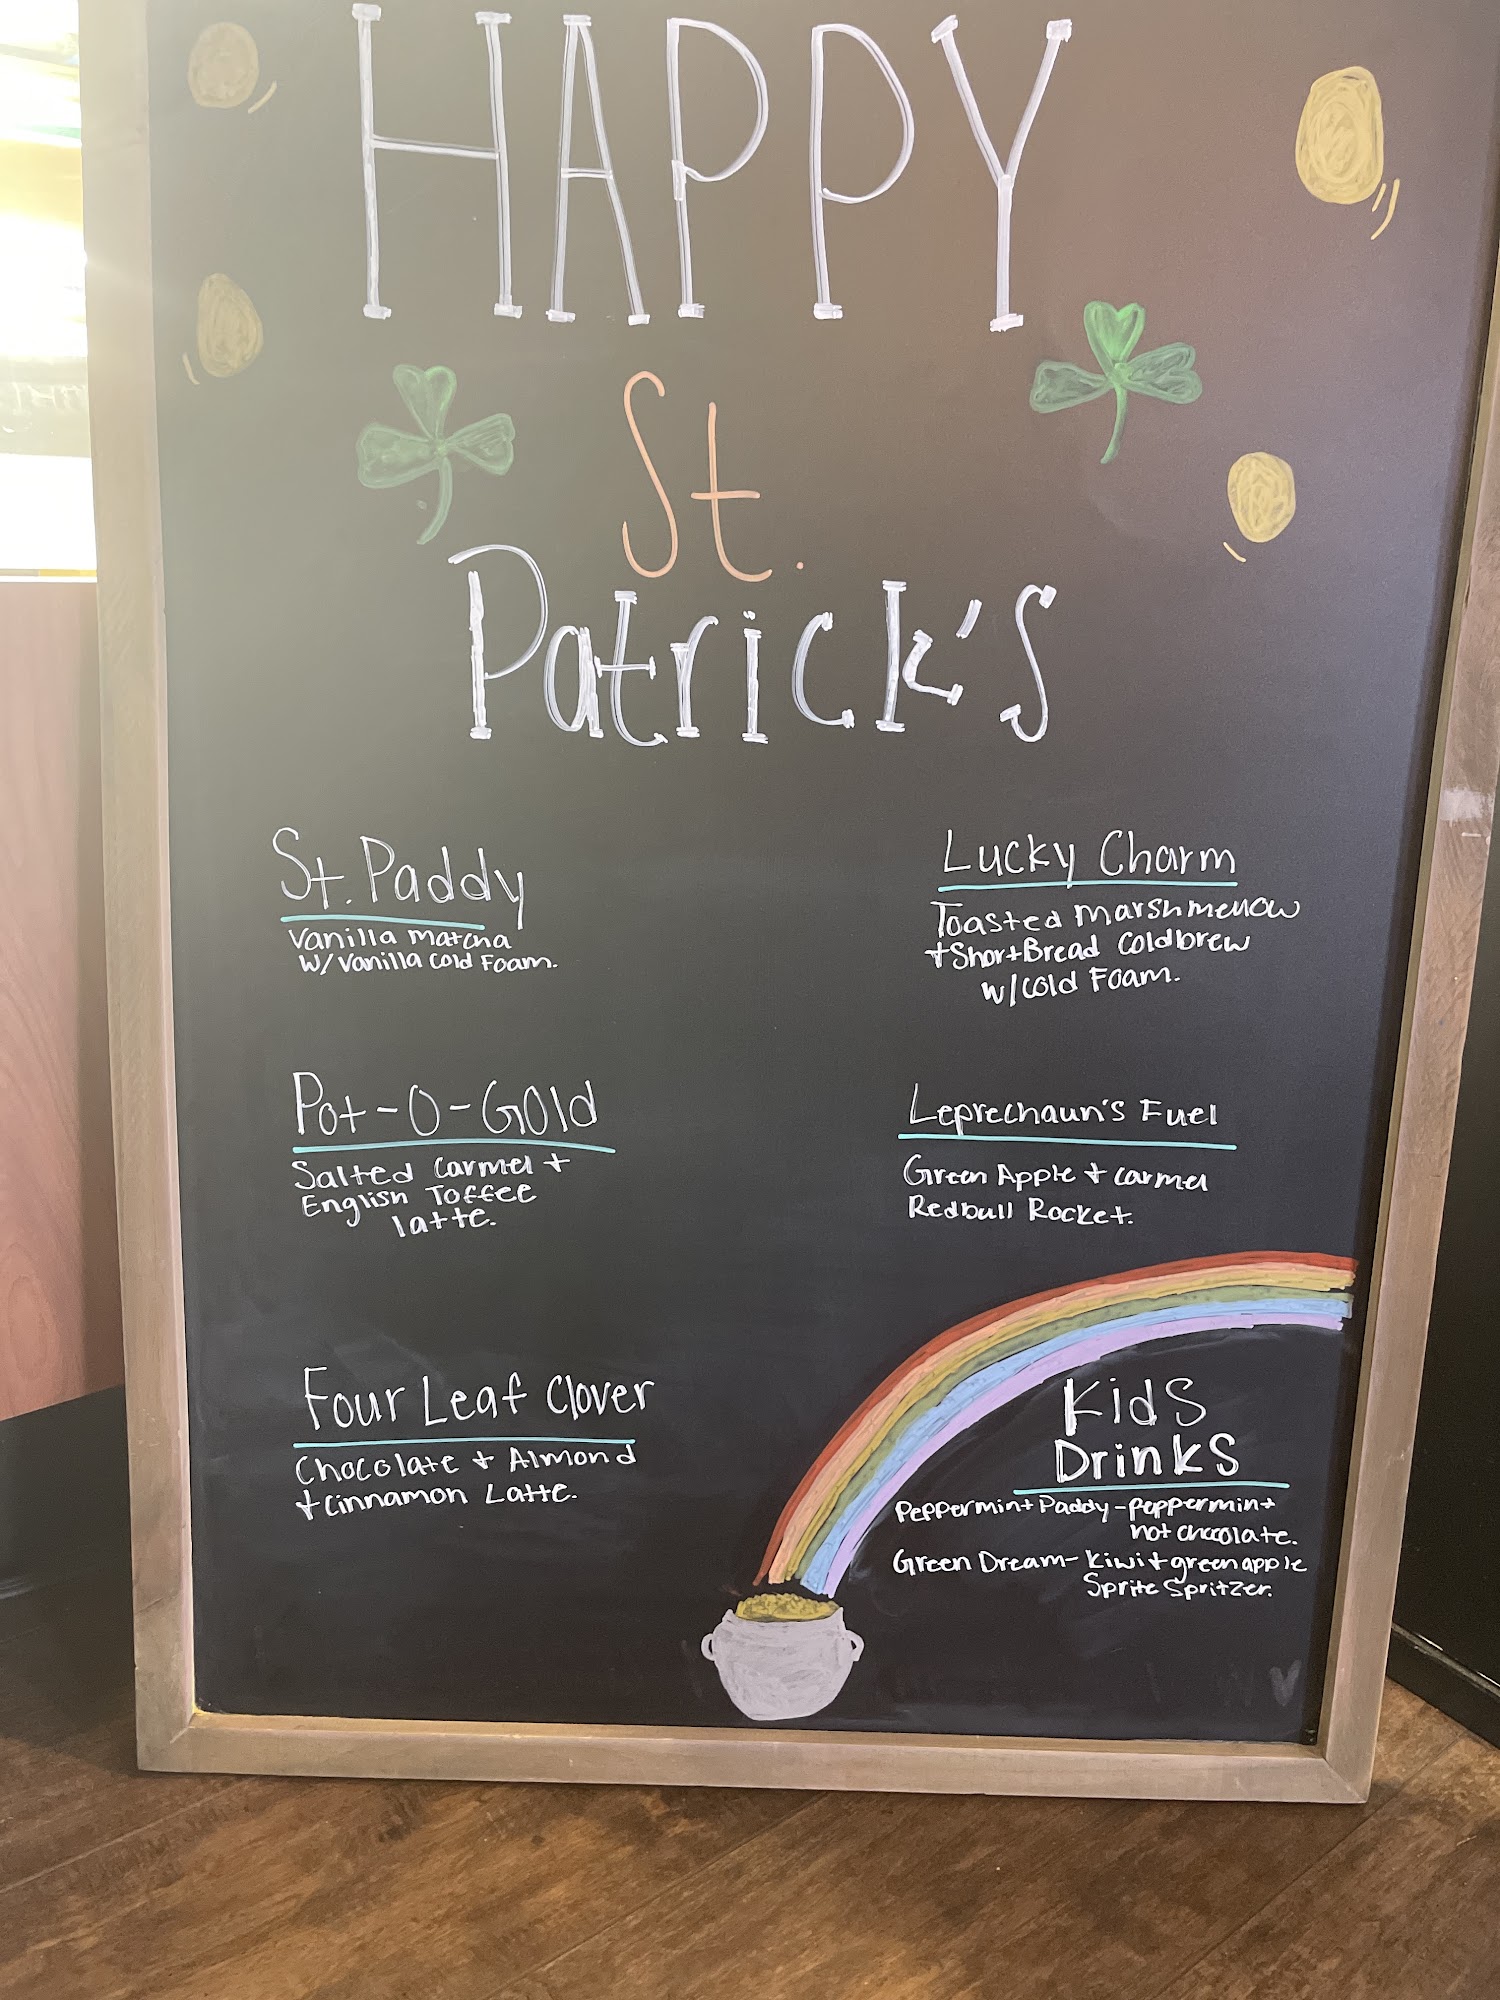 HAPPY
St.
Patrick's
St. Paddy
Vanilla Matcha
w/ Vanilla Cold Foam.
Pot-O-Gold
Salted Carmel +
English Toffee
latte.
Four Leaf Clover
Chocolate + Almond
+ Cinnamon Latte.
Lucky Charm
Toasted Marshmellow
+ ShortBread Coldbrew
w/ Cold Foam.
Leprechaun's Fuel
Green Apple + Carmel
Redbull Rocket.
Kids
Drinks
Peppermint Paddy - peppermint
hot chocolate.
Green Dream - Kiwi + green apple
Sprite Spritzer.